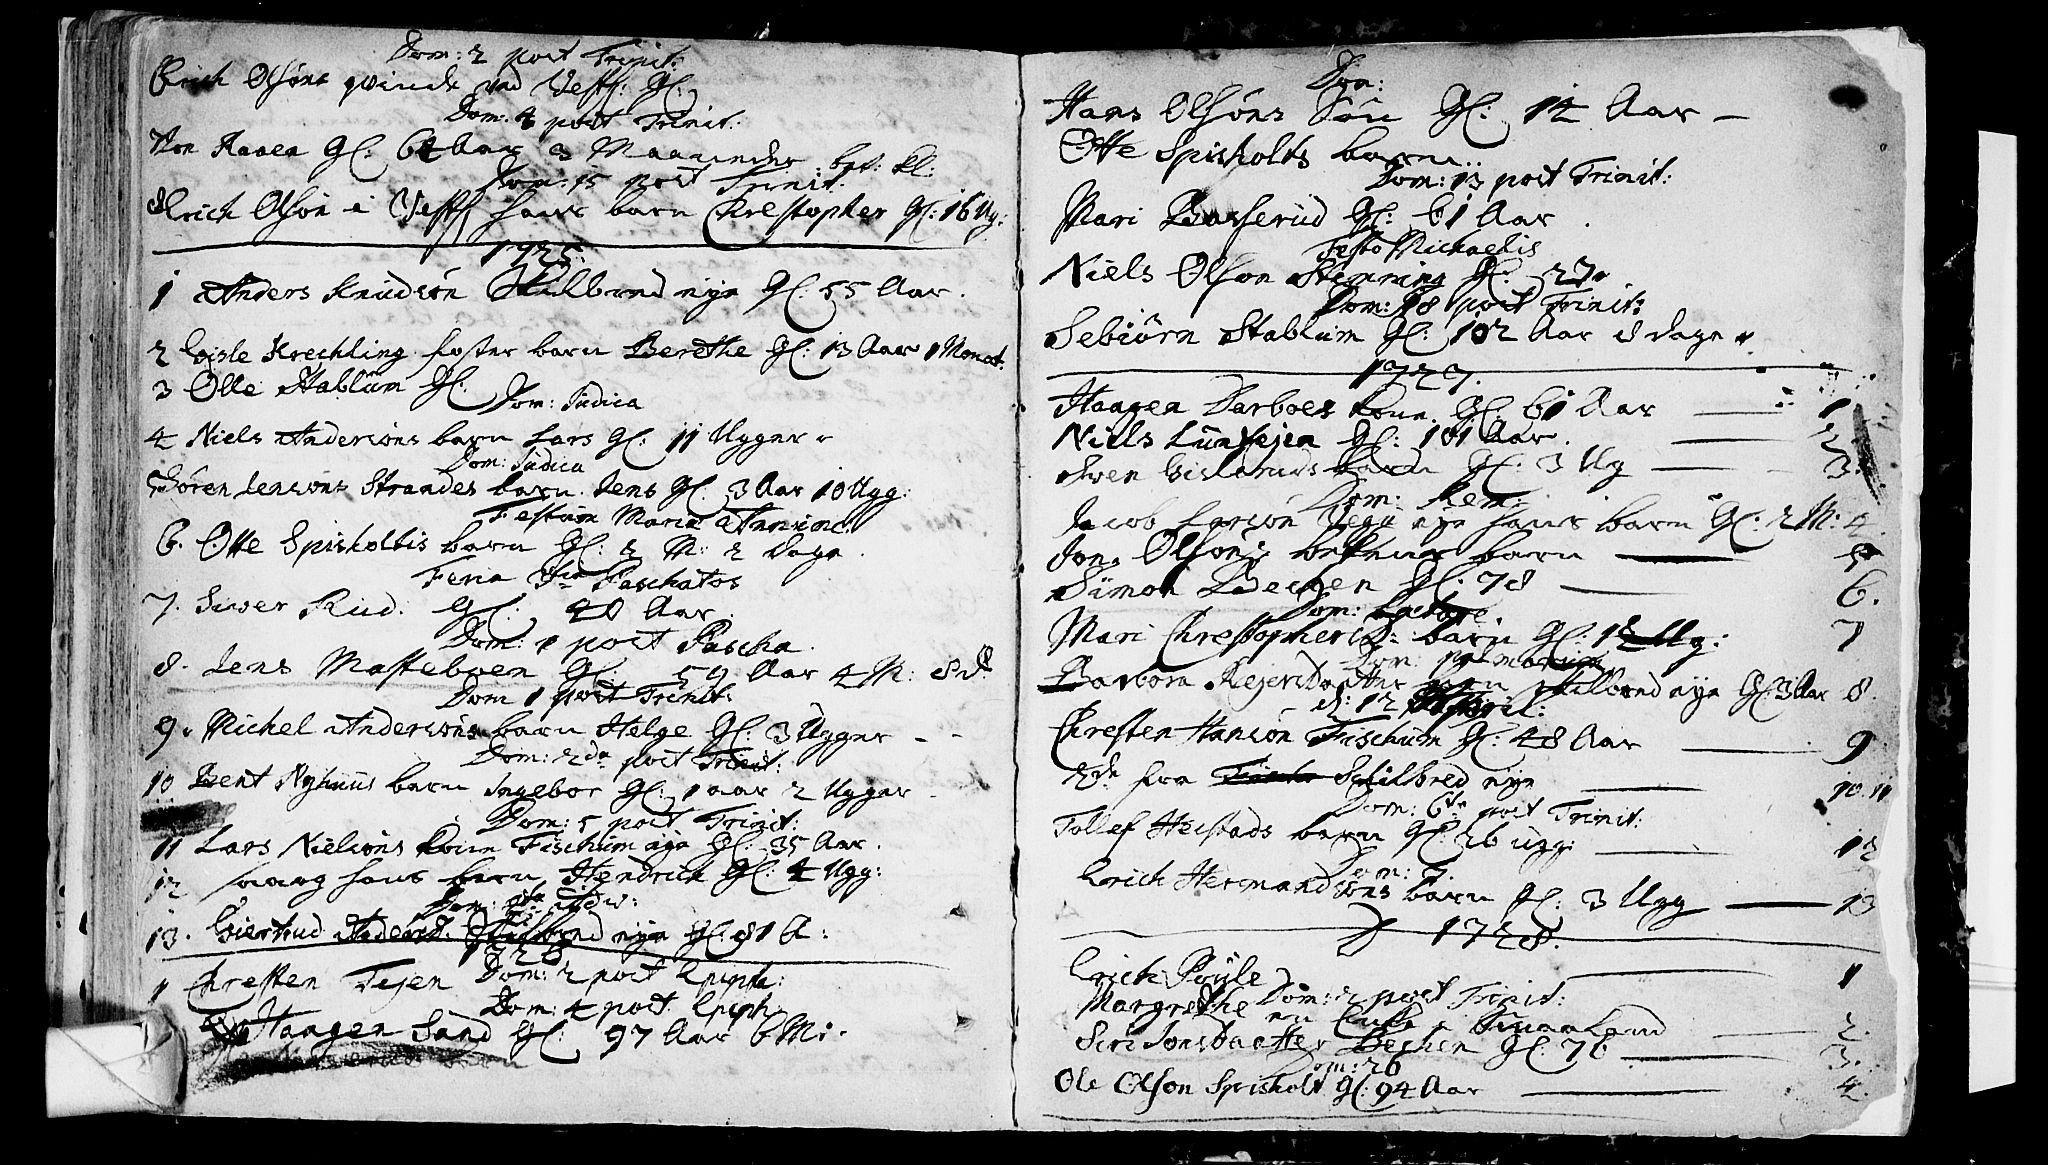 Dom: 2 post Trinit:
Erich Olsöns qvinde ved Vestf: Gl:
Dom: 4 post Trinit:
Aaen Gl: 64 Aar 3 Maaneder bgr: kl:
Dom: 15 post Trinit:
Erich Olsön i Vestf hans barn Chrestopher Gl: 16 Ug:
1725.
1 Anders Knudsön Skilbred eye Gl: 55 Aar.
2 Gisle Krechling foster barn Berethe Gl: 13 Aar 1 Monat.
3 Olle Stablum Gl.
Dom: Judica
4 Niels Andersöns barn Lars Gl: 11 Ugger
Dom: Judica
5 Sören Jensöns Strandes barn Jens Gl: 3 Aar 10 Ugg:
Festum Mariæ Annunc:
6. Otte Spisholtis barn Gl: 2 M: 2 Dage.
Feria Paschatos
7. Siver Rud. Gl: 40 Aar.
Dom: 1 post Pascha.
8. Jens Masteboen Gl: 59 Aar 4 M: 8 d
Dom 1 post Trinit:
9. Michel Andersöns barn Helge Gl: 3 Ugger
Dom: 2da post Trinit:
10 Bent Nyhuus barn Ingebor Gl: 1 aar 2 Ugger
Dom: 5 post Trinit:
11 Lars Nielsöns Kone Fischum eye Gl: 35 Aar.
12 hans barn Hendrich Gl: 4 Ugg:
Dom: Adv:
13. Giertrud Skilbred eye Gl: 81 A:
1726
1 Chresten Tejen Dom: 2 post Epiph:
Dom: 4 post Epiph.
Haagen Sand Gl: 97 Aar 6 M:
Dom:
Hans Olsöns Sön Gl: 14 Aar
Otte Spisholts barn
Dom: 13 post Trinit:
Mari Gl: 61 Aar.
Festo Michaelis
Niels Olson Gl: 27.
Dom: 18 post Trinit:
Sebiörn Stablum Gl: 102 Aar 8 dage
1727.
Haagen Darboes Kone Gl: 61 Aar 1
Niels Gl: 101 Aar. 2
Gl: 3 Ug 3.
Dom: Rem:
Jacob Larsön eye hans barn Gl: 2 M: 4.
Jon Olsöns barn 5
Simon Bechen Gl: 78 6.
Dom: Lætare.
Mari Chrestophersd: barn Gl: 12 Ug: 7
Dom: palmarum
Barbora Rejersdaatter barn Skilbred eye Gl: 3 Aar 8
d: 12 April:
Chresten Hansön Fischum Gl: 48 Aar 9
2de fra Schilbred eye 10. 11
Dom: 6te post Trinit:
Tollef Hestads barn Gl: 26 ugg: 12
Dom: 7.
Erich Hermandsöns barn Gl: 3 Ugg 13
1728.
Erich Röyle 1
Dom: 2 post Trinit:
Margrethe en 2.
Siri Jonsdaatter Bechen Gl: 76 3.
Dom: 26
Ole Olson Sprisholt Gl: 94 Aar 4.